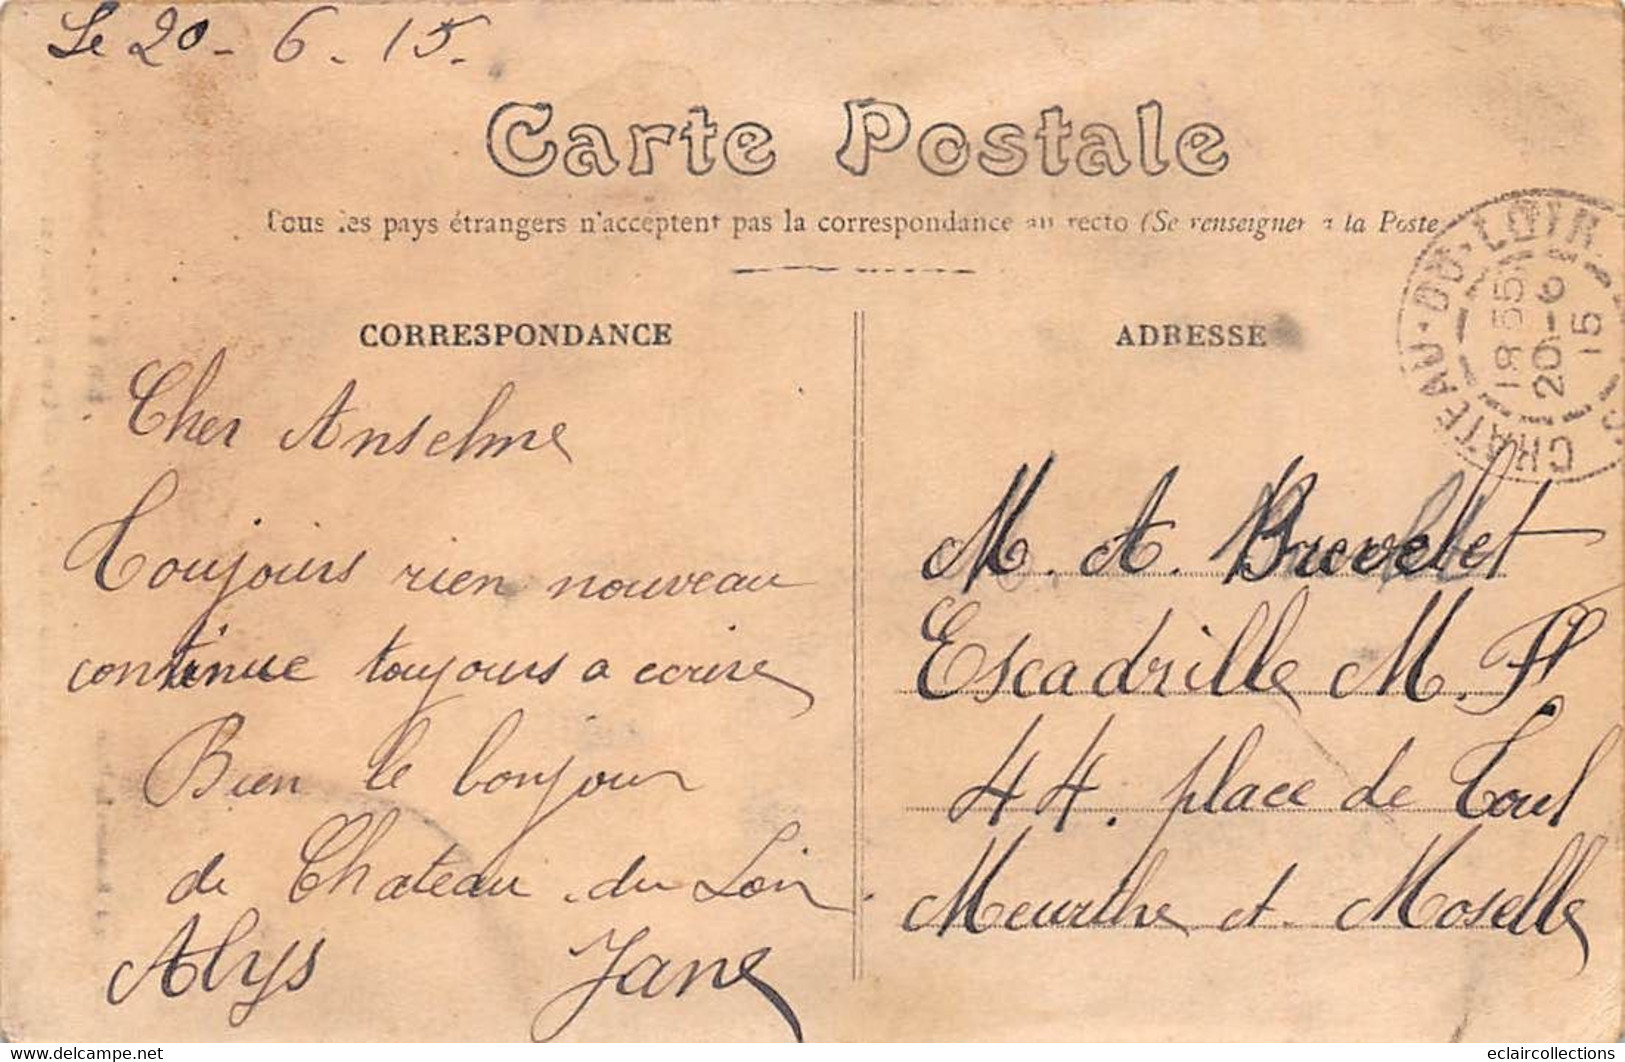 Le 20-6.15.
Carte Postale
Tous les pays étrangers n'acceptent pas la correspondance au recto (Se renseigner à la Poste
CORRESPONDANCE
Cher Anselme
Toujours rien nouveau
continue toujours a ecrire
Bien le bonjour
de Chateau du Loir
Alys Jane
ADRESSE
CHATEAU-DU-LOIR
18 55
20-6
15
M. A. Brevelet
Escadrille M. F
44. place de Toul
Meurthe et Moselle
delcampe.net
eclaircollections